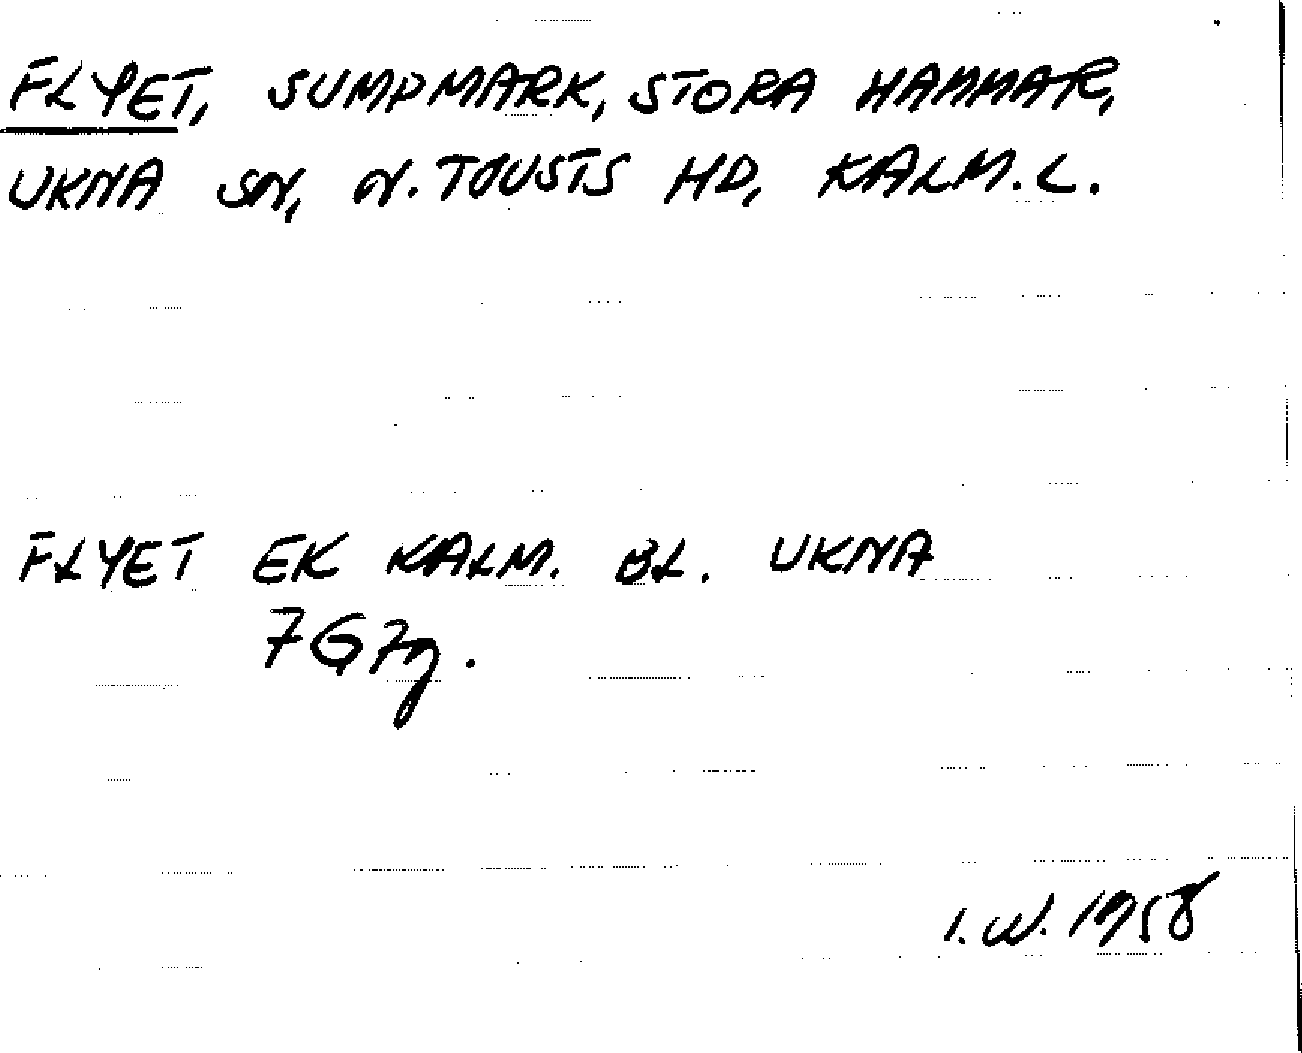 FLYET, SUMPMARK, STORA HAMMAR,
UKNA SN, N. TJUSTS HD, KALM. L.
FLYET EK KALM. BL. UKNA
7G7g.
I. W. 1958